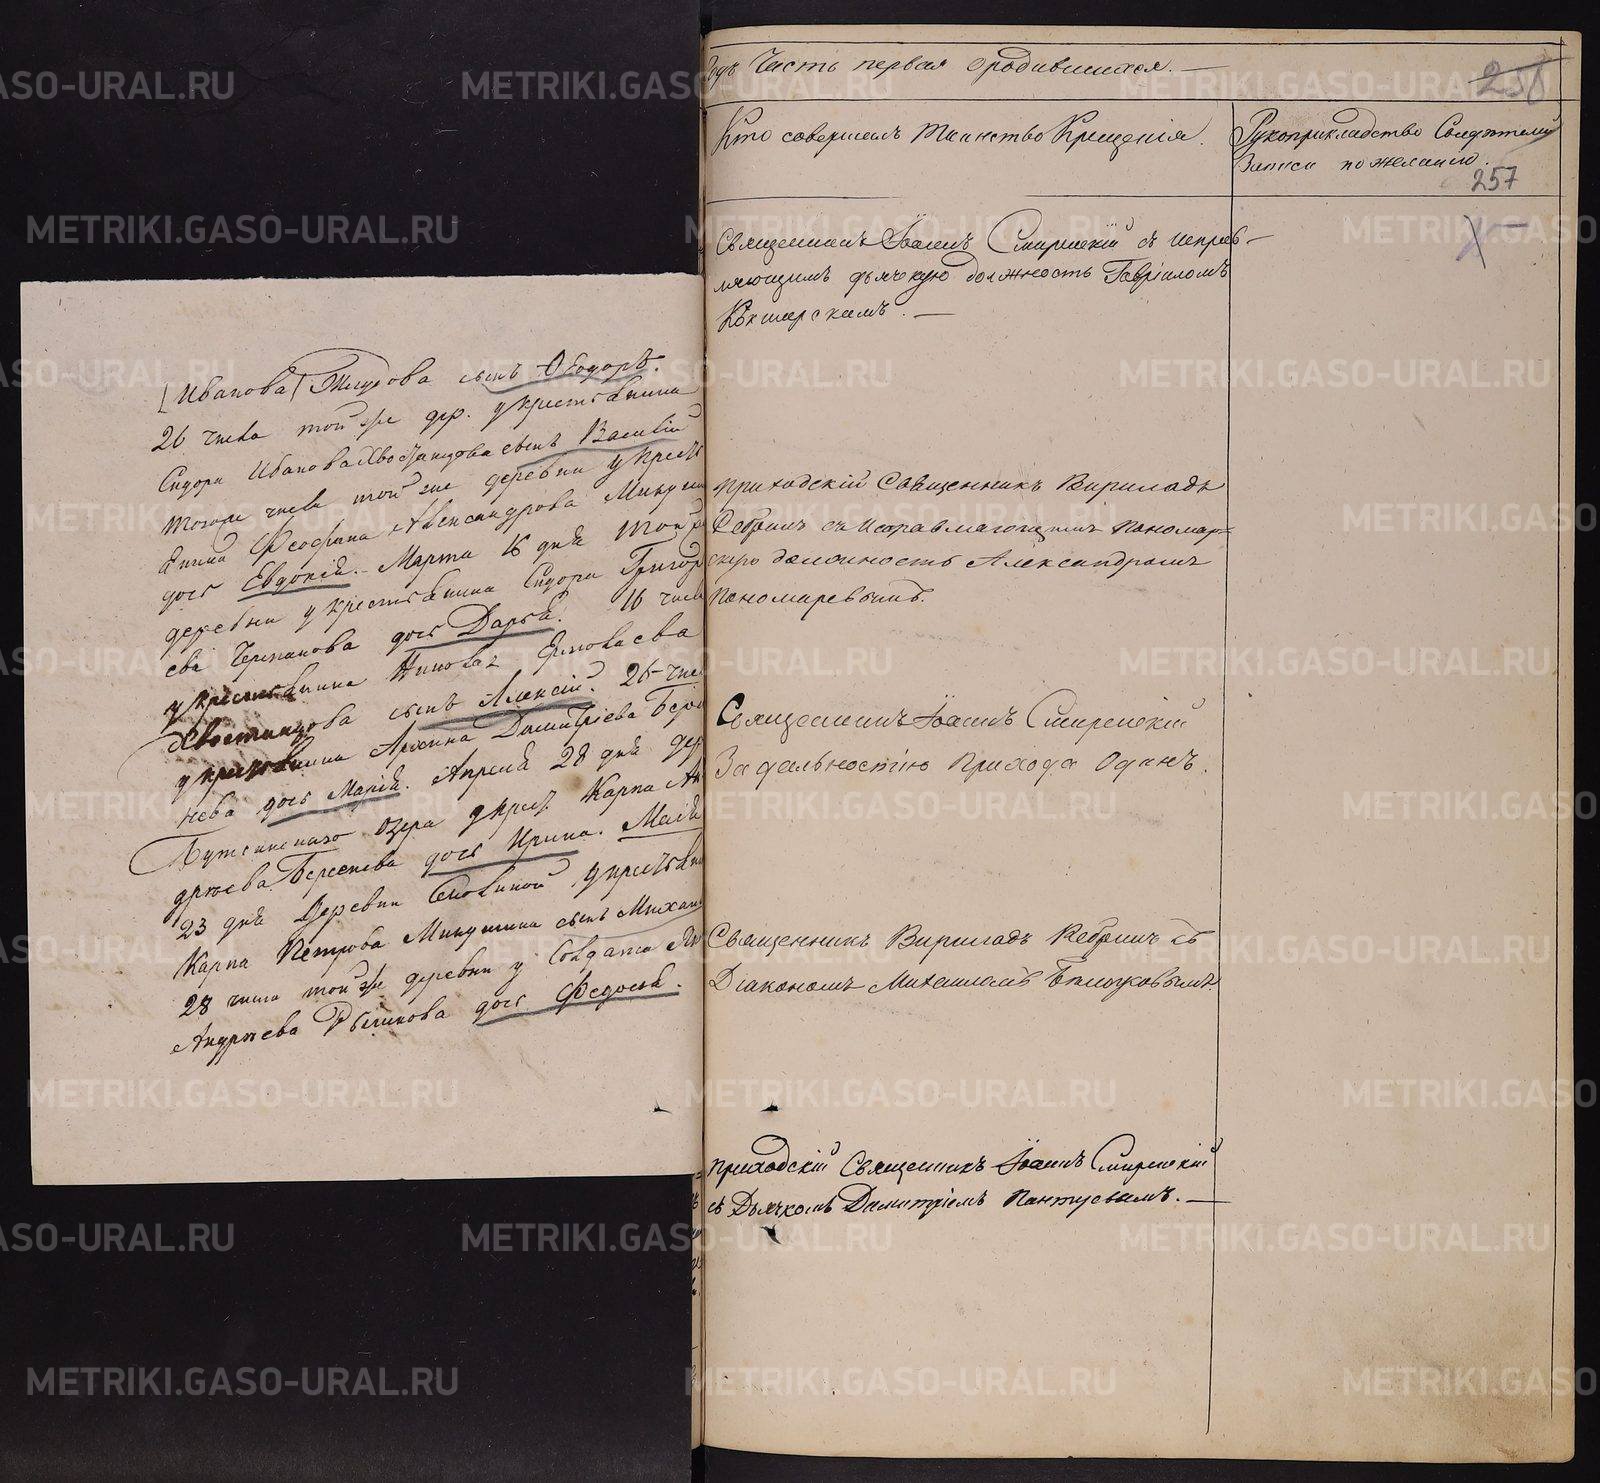 [Иванова] сынъ Ѳеодоръ.
26 числа той же дер. у крестьянина
Сидора Иванова Хвостанцова сынъ Василій
Тогоже числа той же деревни у крест
янина Феофана Александрова
дочь Евдокія. Марта 16 дня той ж
деревни у крестьянина Сидора Григор
ева Черпакова дочь Дарья. 16 числ
у крестьянина Ермолаева
Хвостанцова сынъ Алексій. 25 чис
у крестьянина Димитріева
нева дочь Марія. Апреля 28 дня дер
озера у крест. Карпа Ан
дреева Берсенева дочь Ирина. Маія
23 дня Деревни у крестьянин
Карпа Петрова Микушина сынъ Михаи
28 числа той же деревни у Солдата
Андреева дочь Федосья.
Годъ Часть первая о родившихся.
258
Кто совершалъ Таинство Крещенія.
Рукоприкладство Свидетелей
Записи по желанію.
257
Священникъ Іоаннъ Смиренскій съ исправ-
ляющимъ дьячкую должность Гавріиломъ
Кокшарскимъ.
Приходскій Священникъ Вириладъ
Ребринъ съ исправляющимъ пономар-
скую должность Александромъ
Пономаревымъ.
Священникъ Іоаннъ Смиренскій
За дальностію прихода Одинъ.
Священникъ Вириладъ Ребринъ съ
Діакономъ Михаиломъ
Приходскій Священникъ Іоаннъ Смиренскій
съ Дьячкомъ Димитріемъ Пантуевымъ.
METRIKI.GASO-URAL.RU